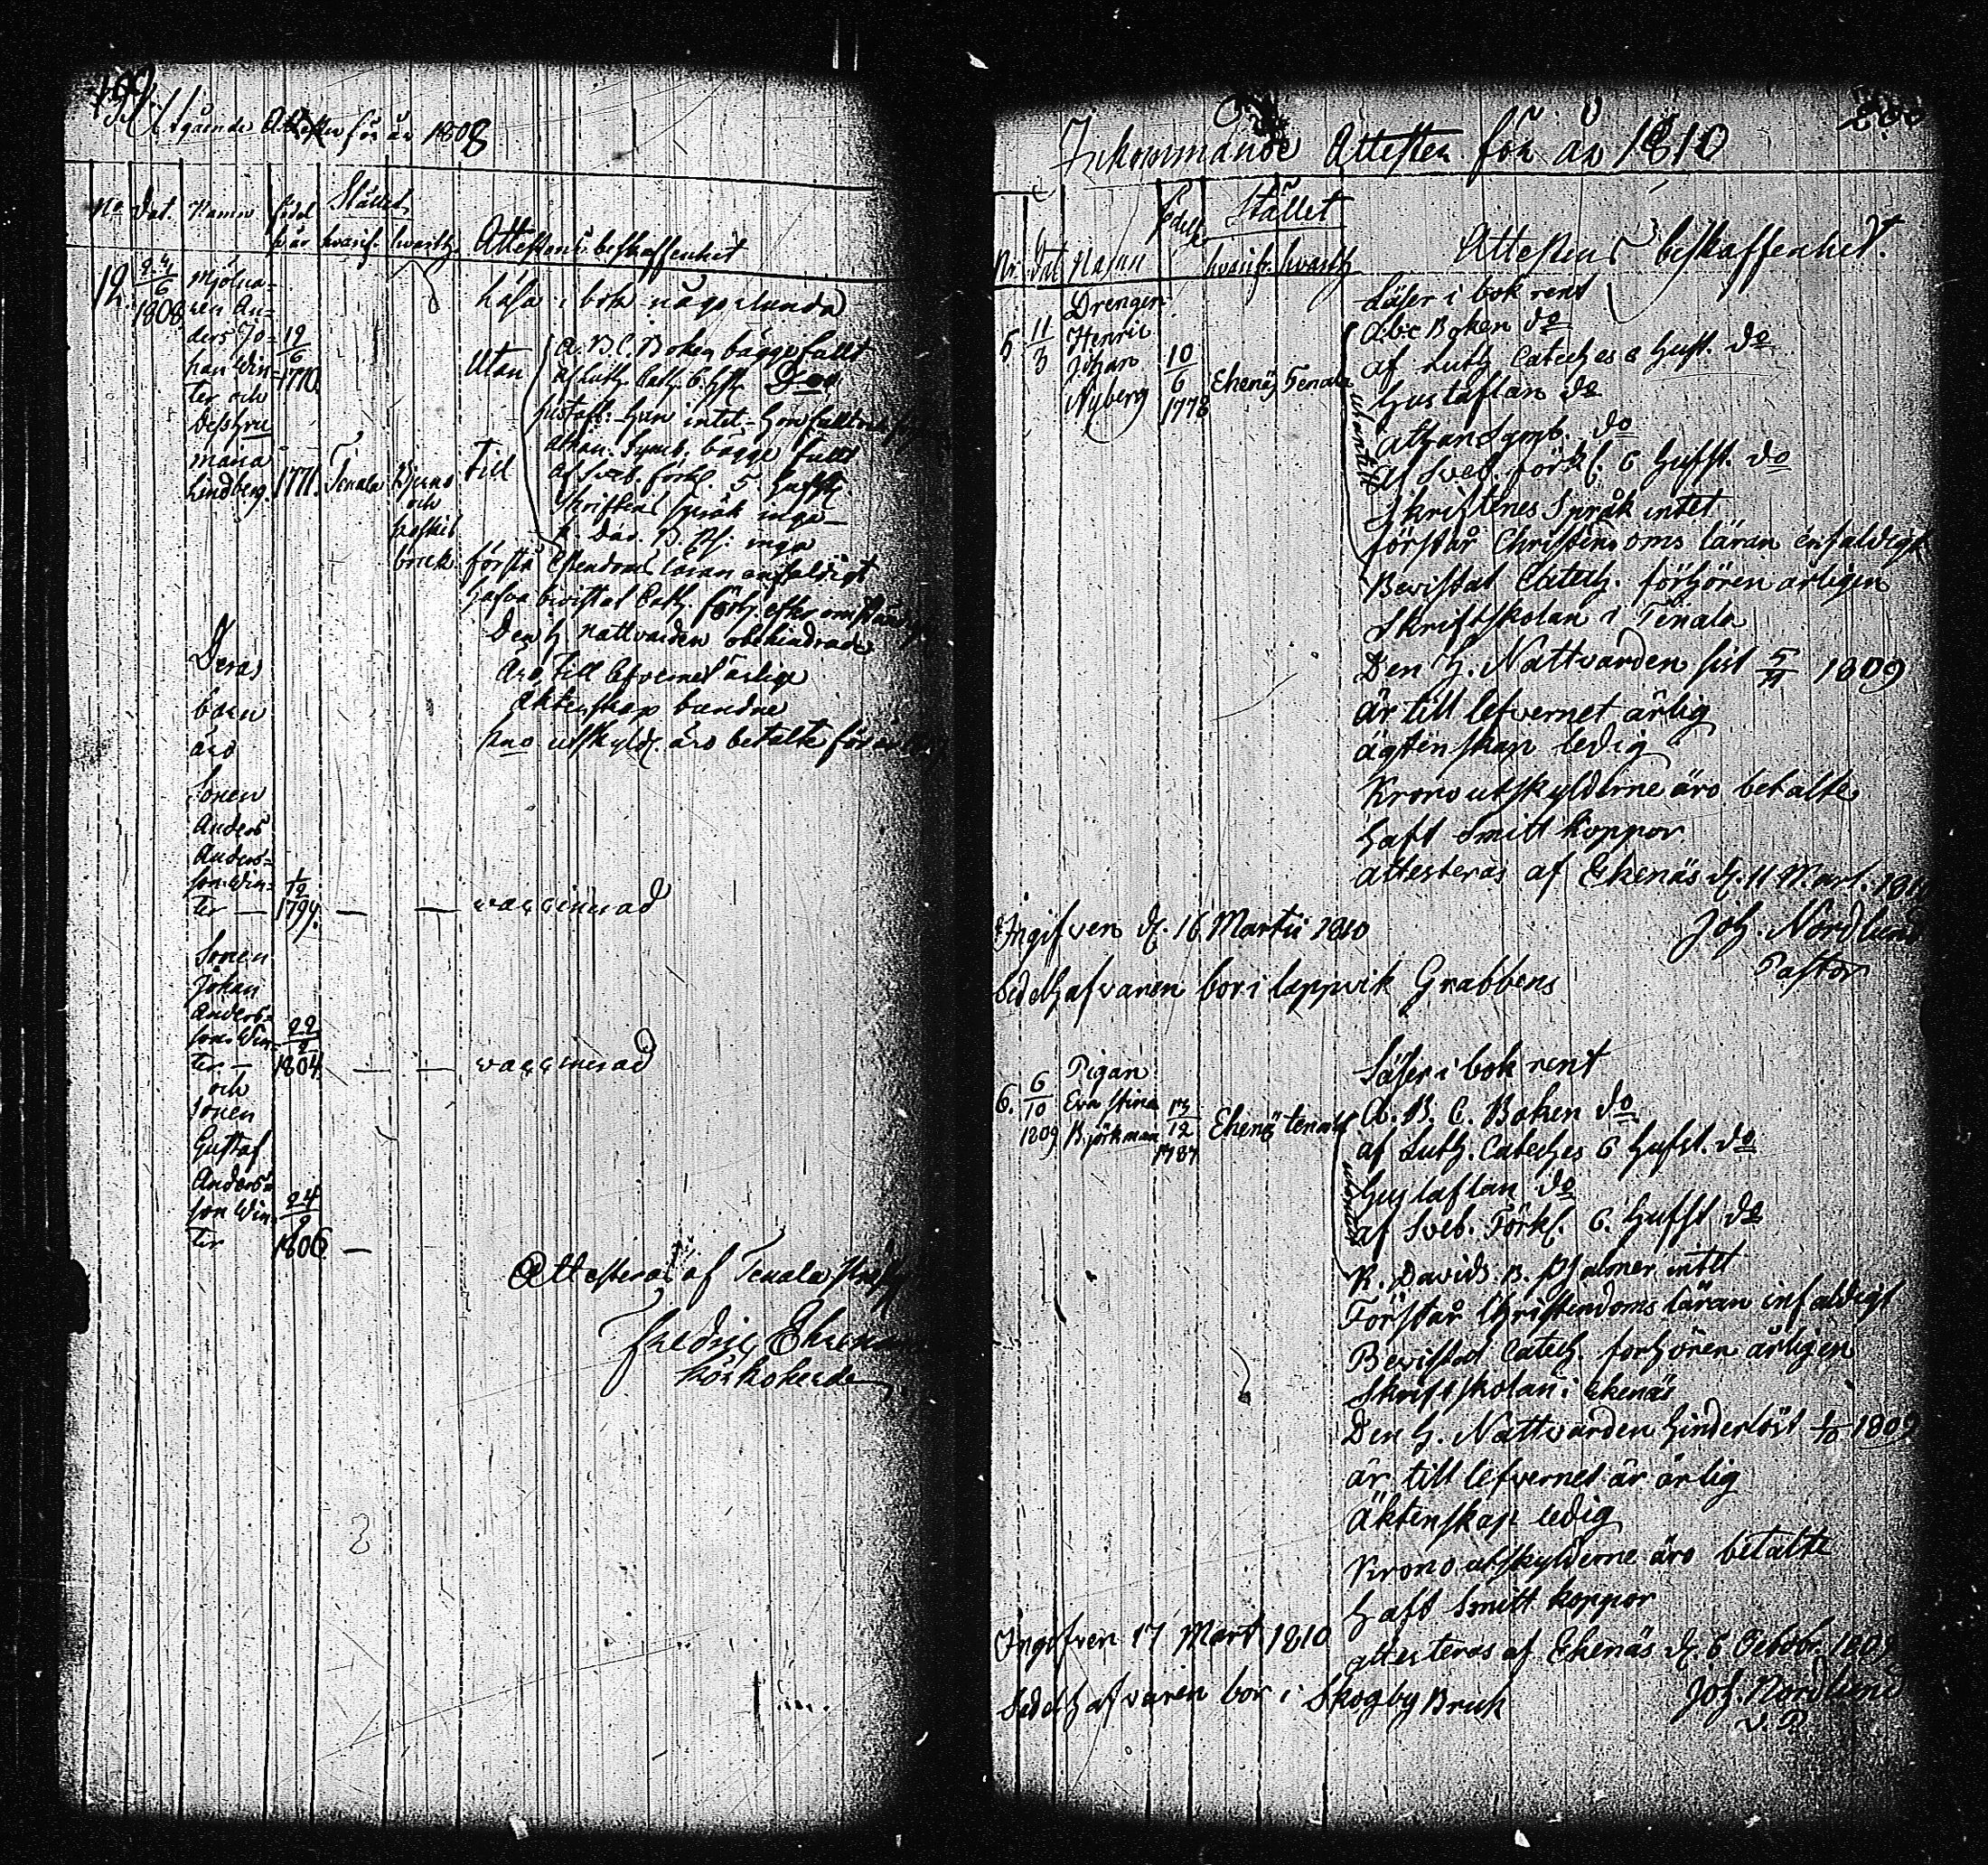 199
Utgående Attester för år 1808
No Dat. Namn födel Stället
hvarif. hvarth. Attestens beskaffenhet
12 24/6 Mjölna-
1808 ren An-
ders Jo- 12/6
han Win- 1770
ter och
dess Hru
Maria
Lindberg. 1771. Tenala Bjerno
och
Koskis
bruk
läsa i bok någorlunda
Utan
Till
A. B. C. Boken bägge fullt
af Luth. Cath. 6. Hfst. Do
Hustafl. han intet, hon fullt
Athan. Symb. bägge fullt
af Sveb. förkl. 5 Hufst.
Skriftens språk inga
K. Dav. B. Ps: inga
förstå Christendoms läran enfaldigt
hafva bevistat Cath. förh. efter
Den H. Nattvarden obehindrade
äro till lefvernet ärliga
Äktenskap bundne
Kno utskyld. äro betalte för
Deras
barn
äro
Sonen
Anders
Anders-
son Win-
ter — 1799. — — vaccinerad
Sonen
Johan
Anders-
son Win- 22/2
ter — 1804. — — vaccinerad
och
Sonen
Gustaf
Anders-
son Win- 24/9
ter 1806 —
Attesteras af Tenala
Fredric
Kyrkoherde
200
Inkommande Attester för år 1810
födel Stället
Nr. Dat Namn hvarifr. hvarth Attestens beskaffenhet.
5 11/3 Drengen
Henric
Johan 10/6
Nyberg 1778 Ekenäs Tenala
Läser i bok rent
utantill
Abc Boken do
af Luth Cateches 6 Hufst. do
Hustaflan do
Athan Symb. do
af Sveb. förkl. 6 Hufst. do
Skriftenes Språk intet
förstår Christendoms läran enfaldigt
Bevistat Catech. förhören årligen
Skriftskolan i Tenala
Den H. Nattvarden sist 5/11 1809
är till lefvernet ärlig
ägtenskap ledig
Krono utskylderne äro betalte
Haft Smitt koppor
attesteras af Ekenäs d. 11 Mart. 181
Ingifven d. 16 Martii 1810
Joh. Nordlund
Pastor
Sedelhafvaren bor i Lappvik Grabbens
6. 6/10 Pigan
Eva Stina 13/12
1809 Björkman 1787 Ekenäs tenala
Läser i bok rent
utantill
A. B. C. Boken do
af Luth. Cateches 6 Hufst. do
Hustaflan do
af Sveb. Förkl. 6. Hufst do
K. Davids B. Psalmer intet
Förstår Christendoms läran enfaldigt
Bevistat Catech. förhören årligen
Skriftskolan i Ekenäs
Den H. Nattvarden hinderlöst 1/10 1809
är till lefvernet är ärlig
Äktenskap ledig
Krono utskylderne äro betalte
Haft Smitt koppor
Ingifven 17 Mart 1810
attesteras af Ekenäs d. 6 Octobr. 1809
Sedelhafvaren bor i Skogby Bruk
Joh. Nordlund
V. P.